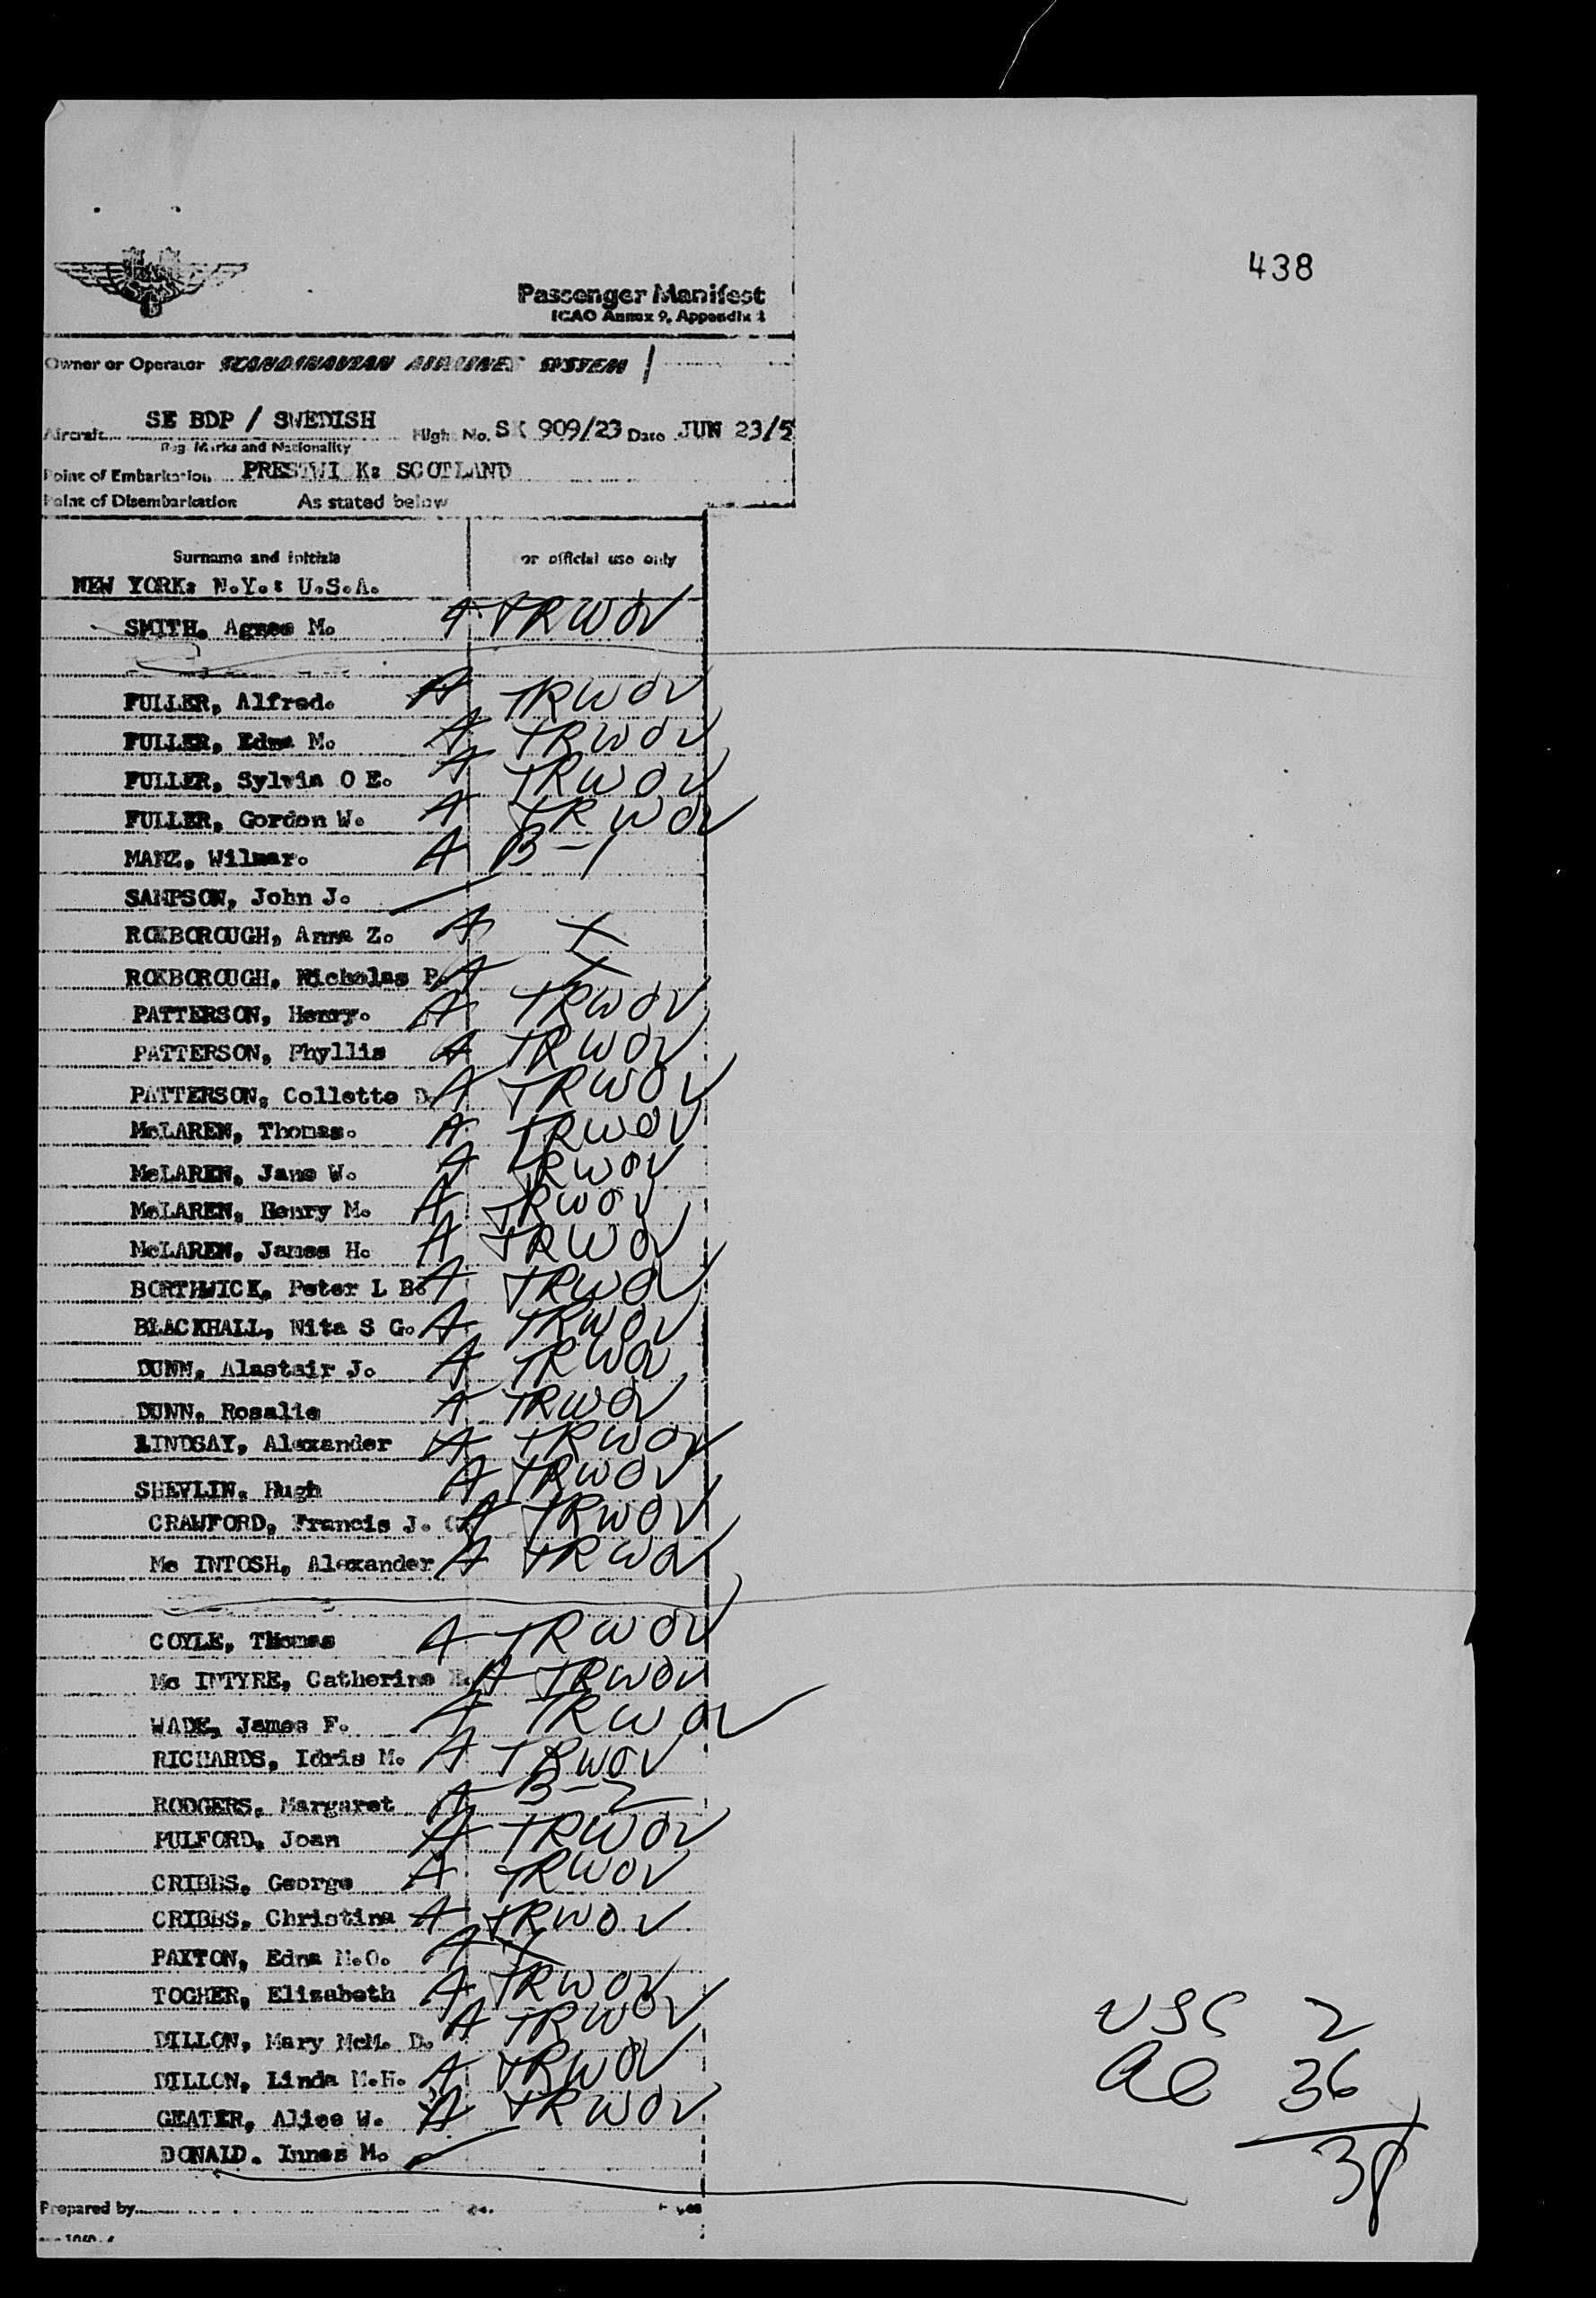 438
Passenger Manifest
ICAO Annex 9, Appendix 1
Owner or Operator SCANDINAVIAN AIRLINES SYSTEM
Aircraft SE BDP / SWEDISH Flight No. SK 909/23 Date JUN 23/5
Reg. Marks and Nationality
Point of Embarkation PRESTWI K: SCOTLAND
Point of Disembarkation As stated below
Surname and initials or official use only
NEW YORK: N.Y.: U.S.A.
SMITH, Agnes M. A TRWOV
FULLER, Alfred. A TRWOV
FULLER, Edna M. A TRWOV
FULLER, Sylvia O E. A TRWOV
FULLER, Gordon W. A TRWOV
MANZ, Wilmar. A B-1
SAMPSON, John J.
ROXBOROUGH, Anna Z. A X
ROXBOROUGH, Nicholas P. A X
PATTERSON, Henry. A TRWOV
PATTERSON, Phyllis A TRWOV
PATTERSON, Collette D. A TRWOV
McLAREN, Thomas. A TRWOV
McLAREN, Jane W. A TRWOV
McLAREN, Henry M. A TRWOV
McLAREN, James H. A TRWOV
BORTHWICK, Peter L B. A TRWOV
BLACKHALL, Nita S G. A TRWOV
DUNN, Alastair J. A TRWOV
DUNN, Rosalie A TRWOV
LINDSAY, Alexander A TRWOV
SHEVLIN, Hugh A TRWOV
CRAWFORD, Francis J. A TRWOV
Mc INTOSH, Alexander A TRWOV
COYLE, Thomas A TRWOV
Mc INTYRE, Catherine A TRWOV
WADE, James F. A TRWOV
RICHARDS, Idris M. A TRWOV
RODGERS, Margaret A B-2
PULFORD, Joan A TRWOV
CRIBBS, George A TRWOV
CRIBBS, Christina A TRWOV
PAXTON, Edna M.O. A X
TOCHER, Elizabeth A TRWOV
DILLON, Mary McM. D. A TRWOV
DILLON, Linda M.H. A TRWOV
GEATER, Alice W. A TRWOV
DONALD. Innes M.
USC 2
Al 36
38
Prepared by